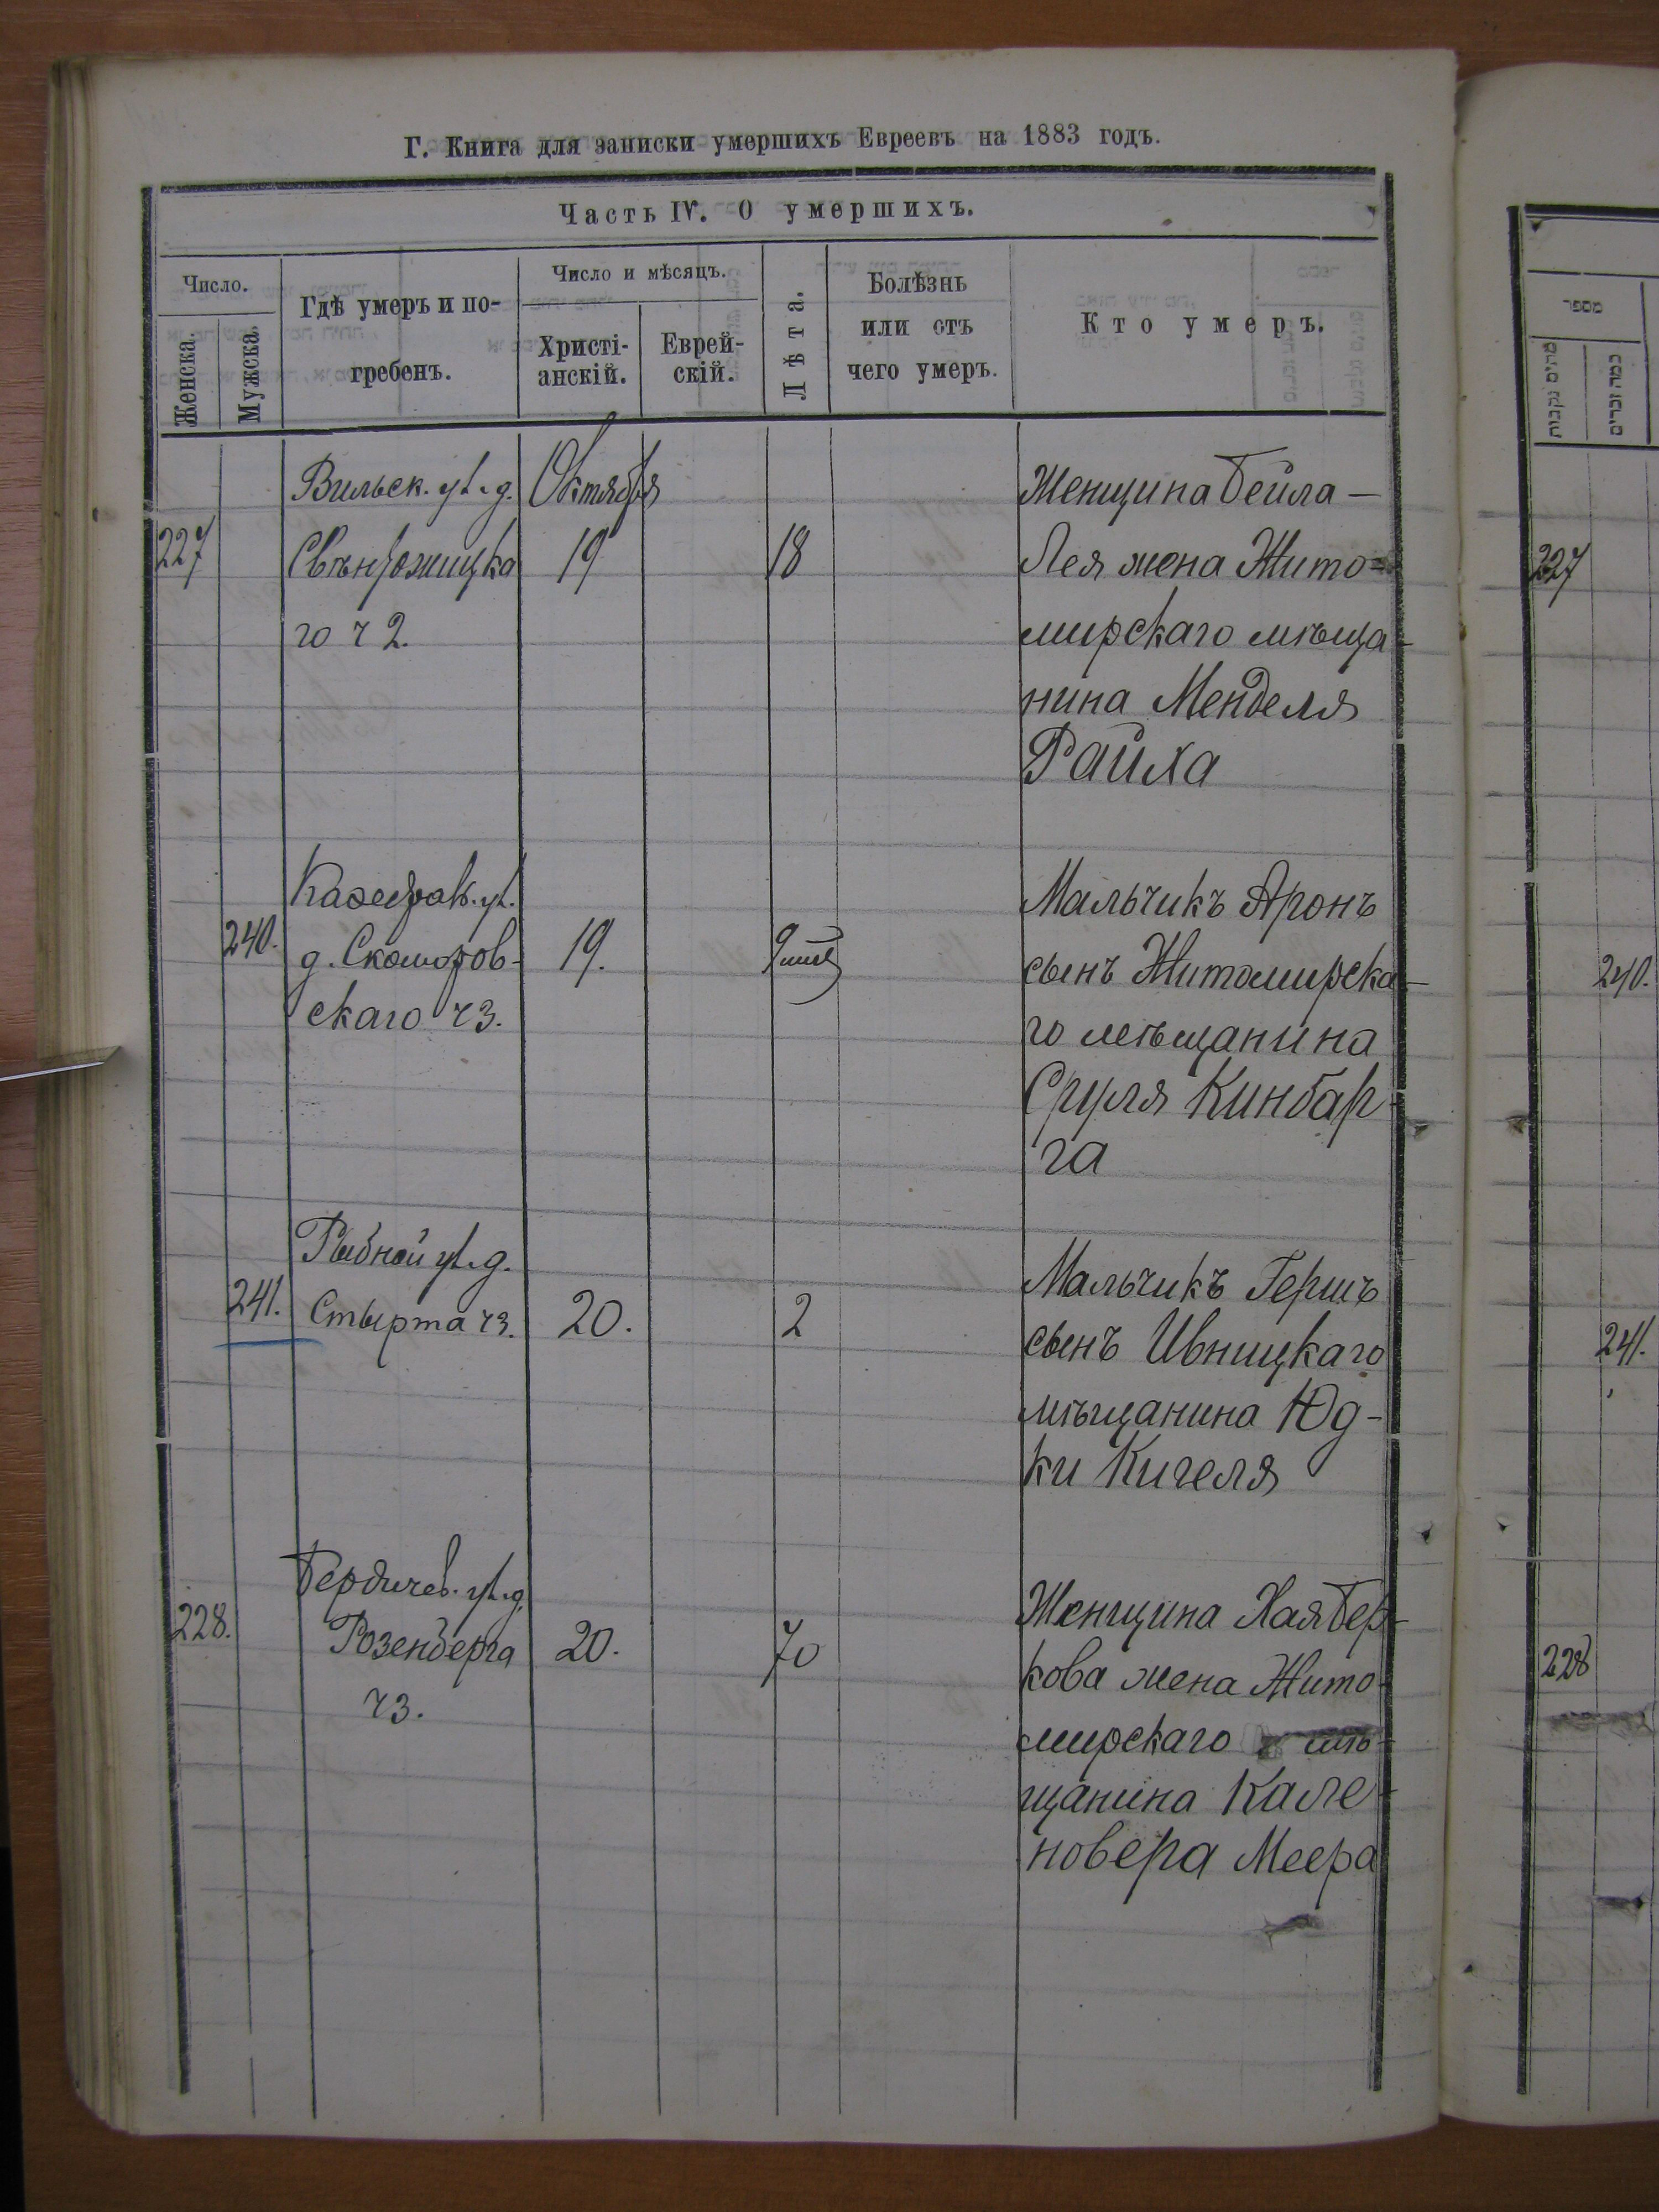 Г. Книга для записки умершихъ Евреевъ на 1883 годъ.
Часть IV. О умершихъ.
Число.
Женска.
Мужска.
Гдѣ умеръ и по-
гребенъ.
Число и мѣсяцъ.
Христі-
анскій.
Еврей-
скій.
Лѣта.
Болѣзнь
или отъ
чего умеръ.
Кто умеръ.
227
Вильск. ул. д.
го ч 2.
Октября
19
18
Женщина Бейла-
Лея жена Жито=
мирскаго мѣща-
нина Менделя
Райха
240.
д. Скоморов-
скаго ч3.
19.
9
Мальчикъ Аронъ
сынъ Житомирска-
го мѣщанина
Сруля Кинбар-
га
241.
Рыбной ул. д.
Стырта ч3.
20.
2
Мальчикъ Гершъ
сынъ Ивницкаго
мѣщанина Юд-
ки Кигеля
228.
Бердичев. ул. д.
Розенберга
ч3.
20.
70
Женщина Хая Бер-
кова жена Жито-
мирскаго мѣ-
щанина Кале-
новера Меера
מספר
מהים נקבות
כמה זכרים
227
240.
241.
228